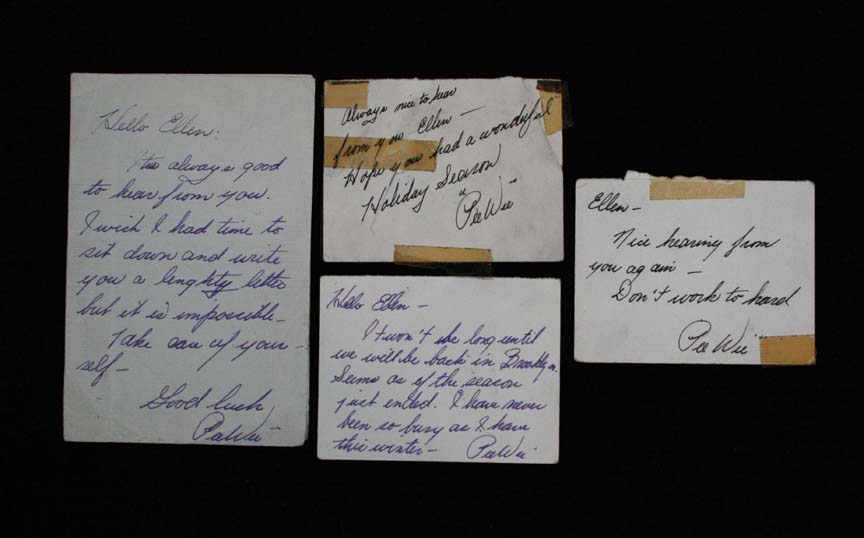 Hello Ellen.
Its always good
to hear from you.
I wish I had time to
sit down and write
you a lenghty letter
but it is impossible-
Take care of your-
self-
Good luck
PeeWee
Always nice to hear
from you Ellen-
Hope you had a wonderful
Holiday Season
"PeeWee"
Hello Ellen-
It won't be long until
we will be back in Brooklyn.
Seems as if the season
just ended. I have never
been so busy as I have
this winter- PeeWee
Ellen-
Nice hearing from
you again-
Don't work to hard
PeeWee